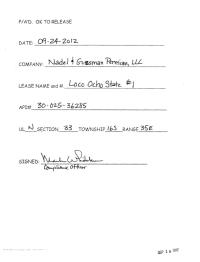 P/A'D. OK TO RELEASE
DATE: 09-24-2012
COMPANY: Nadel & Gussman Permian, LLC
LEASE NAME and #. Loco Ocho State #1
API# 30-025-36285
UL N SECTION 33 TOWNSHIP 16S RANGE 35E
SIGNED:
Compliance Officer